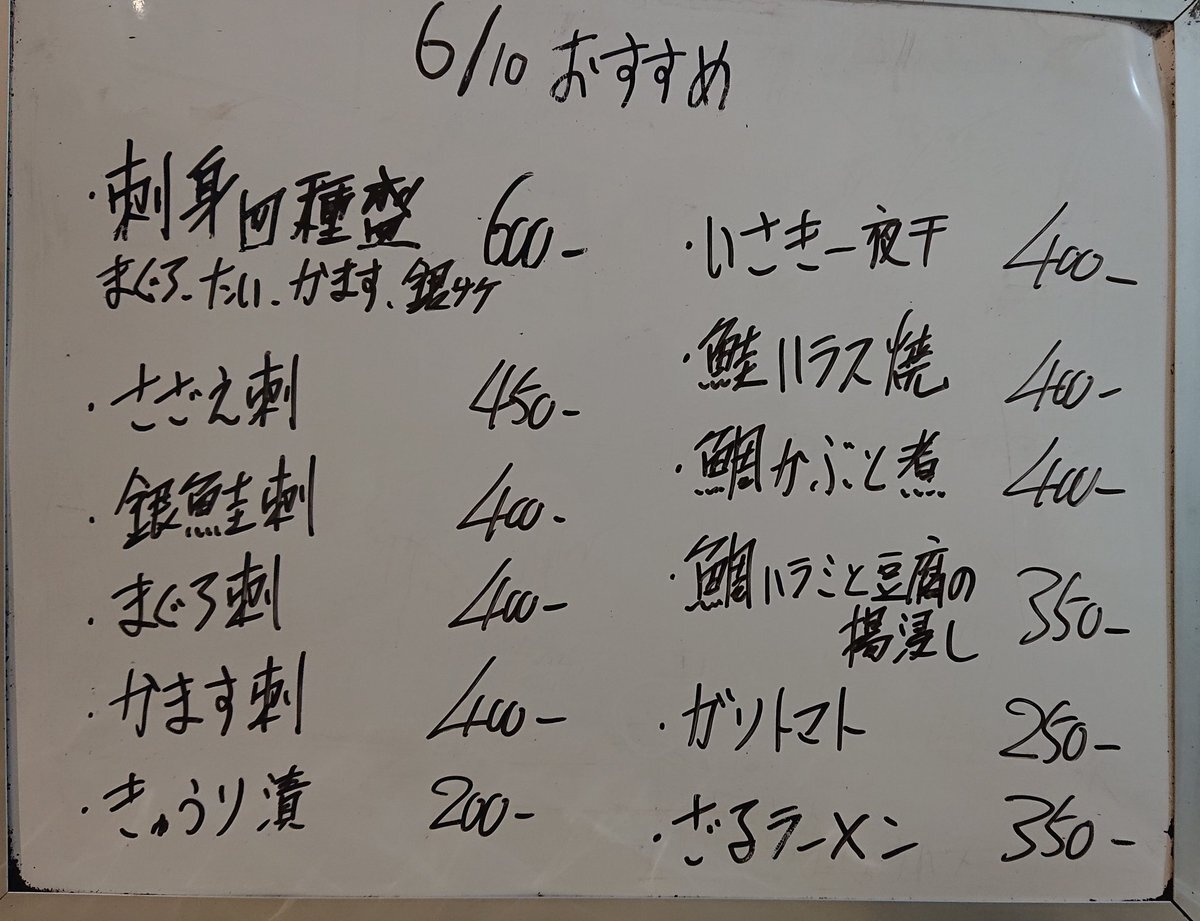 6/10 おすすめ
・刺身四種盛 600-
まぐろ、たい、かます、銀サケ
・さざえ刺 450-
・銀鮭刺 400-
・まぐろ刺 400-
・かます刺 400-
・きゅうり漬 200-
・いさき一夜干 400-
・鮭ハラス焼 400-
・鯛かぶと煮 400-
・鯛ハラミと豆腐の
揚浸し 350-
・ガリトマト 250-
・ざるラーメン 350-